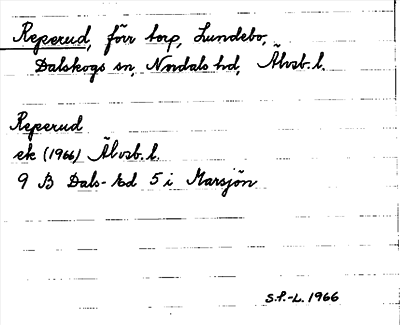 Reperud, förr torp, Lundebo,
Dalskogs sn, Nndals hd, Älvsb. l.
Reperud
ek (1966) Älvsb. l.
9 B Dals-Ed 5 i Marsjön
S.F.-L. 1966